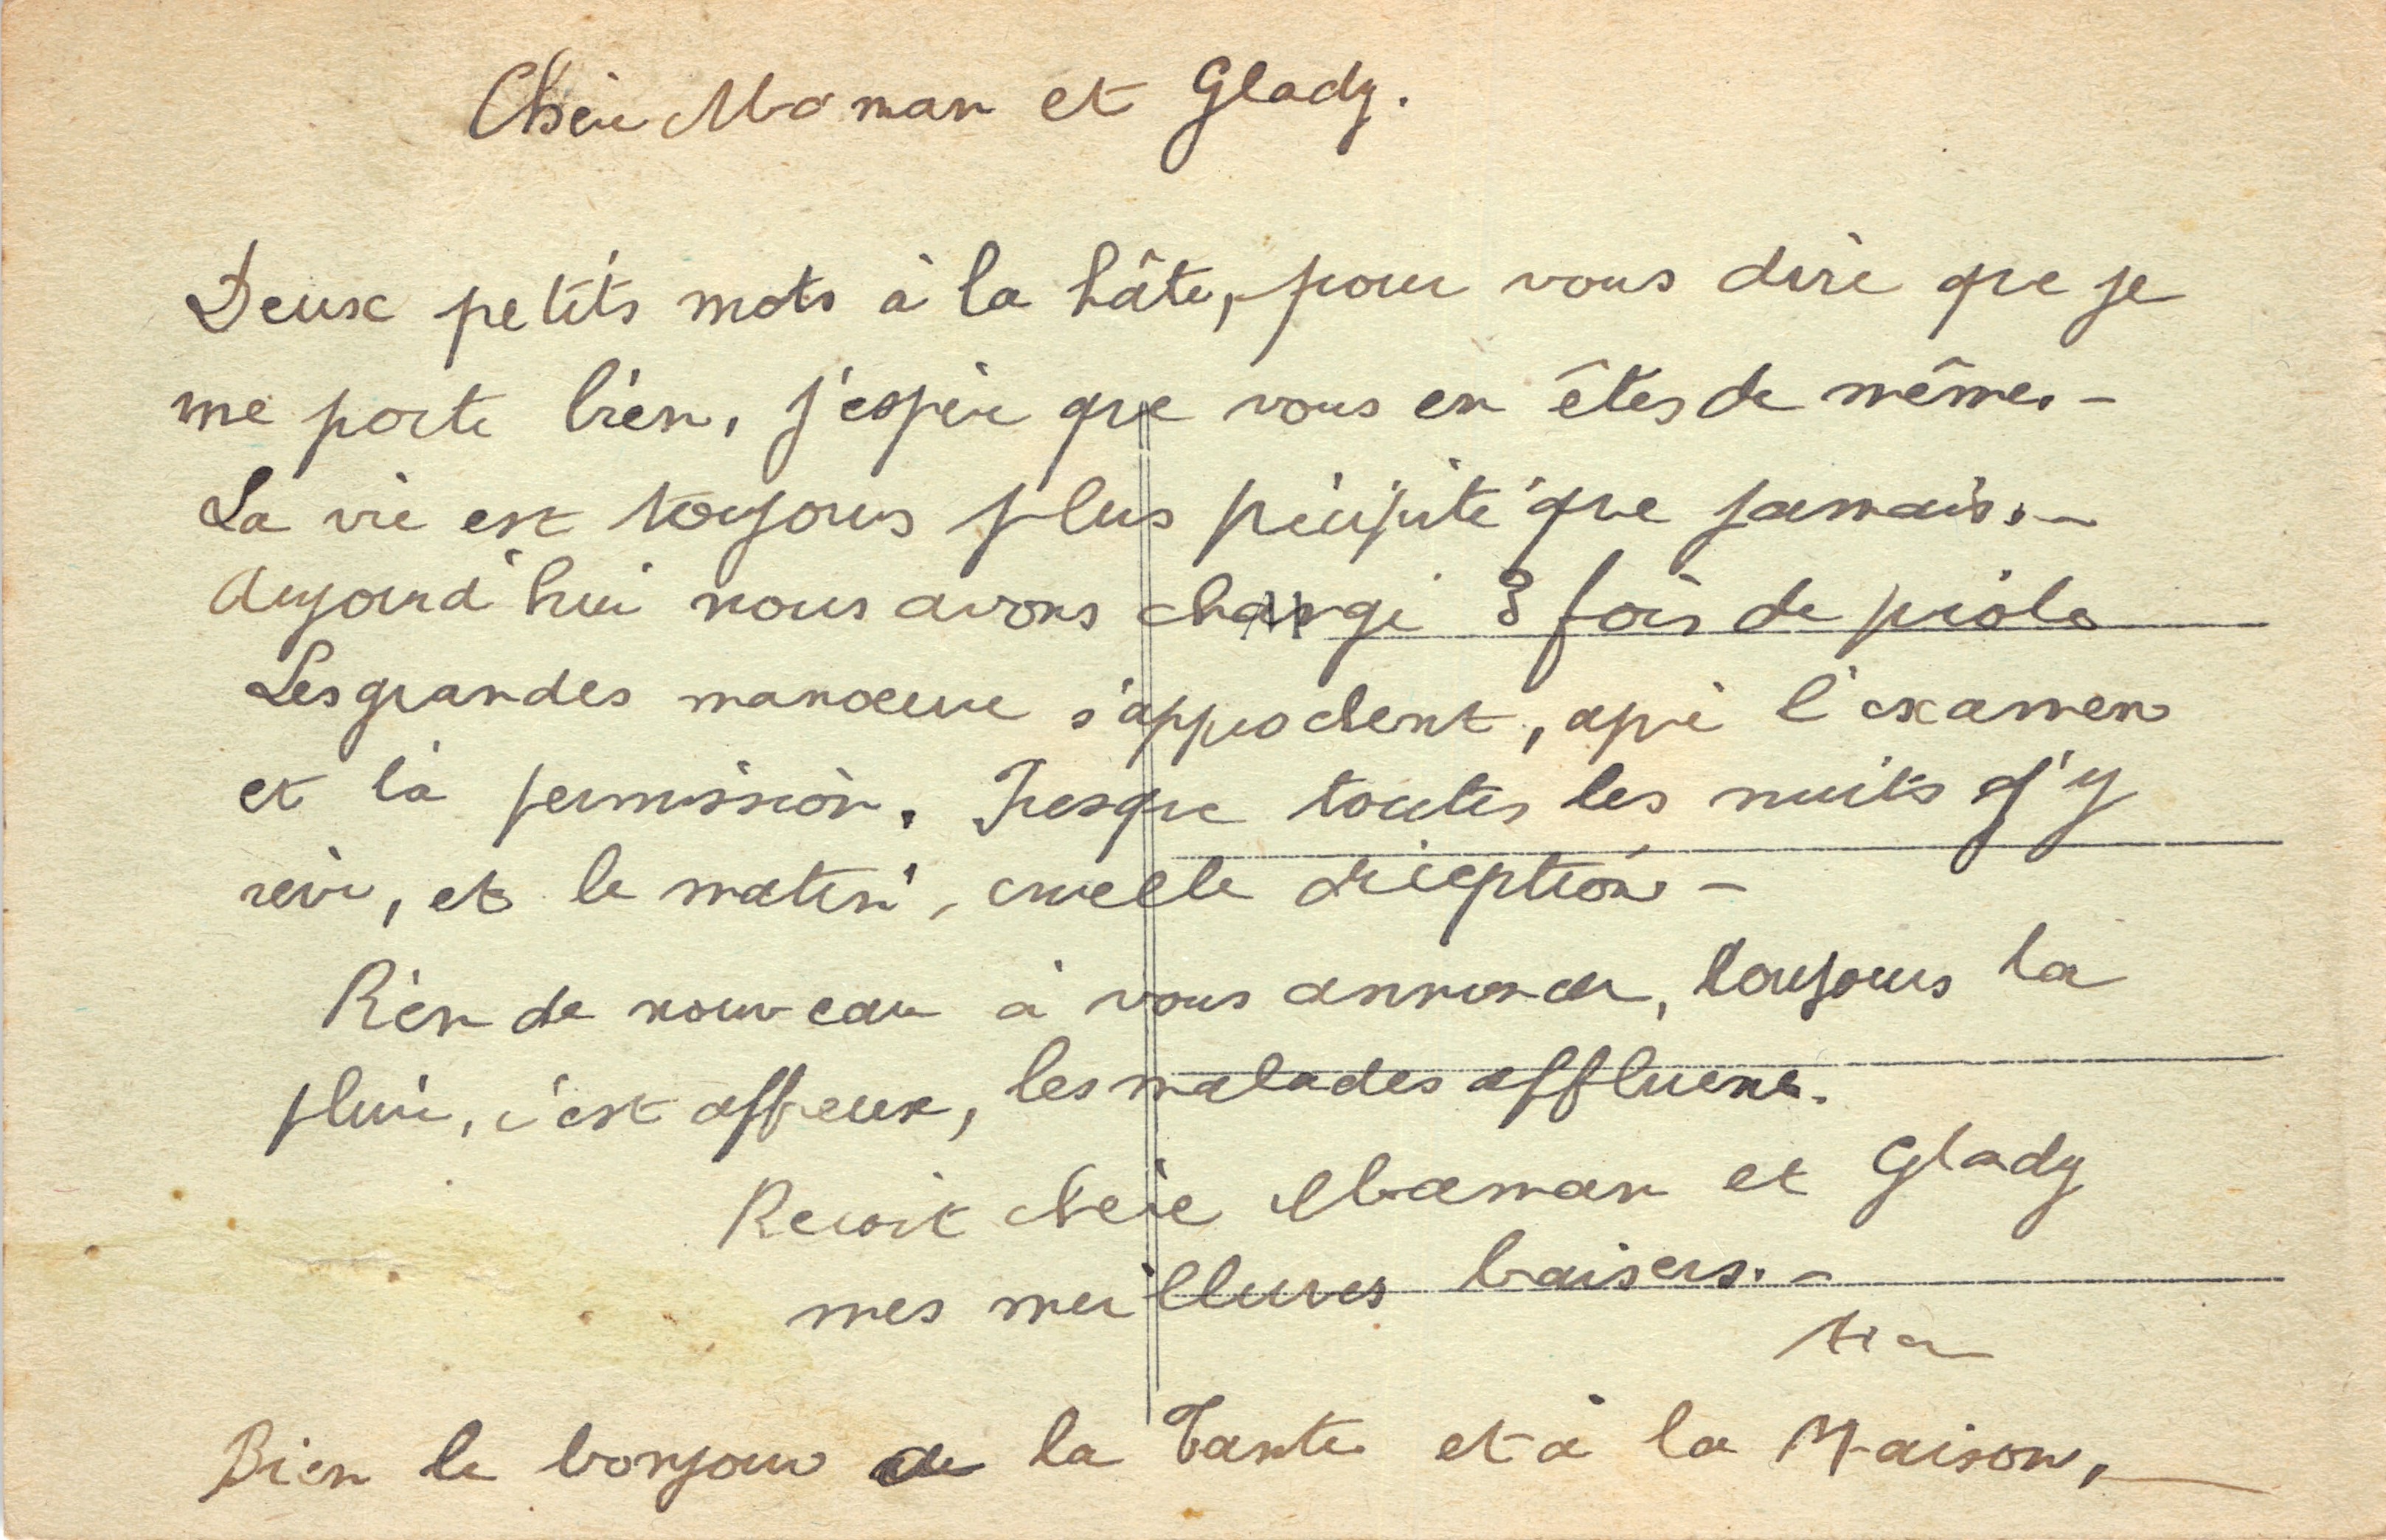 Chère Maman et Glady.
Deux petits mots à la hâte, pour vous dire que je
me porte bien, j'espère que vous en êtes de même. -
La vie est toujours plus précipité que jamais. -
Aujourd'hui nous avons changé 3 fois de piôle
Les grandes manœuvre s'approchent, aprè l'examen
et la permission. Presque toutes les nuits j'y
rève, et le matin, cruelle déception -
Rien de nouveau à vous annoncer, toujours la
pluie, c'est affreux, les malades affluent.
Recoit chère Maman et Glady
mes meilleures baisers. -
Bien le bonjour de la Tante et à la Maison,